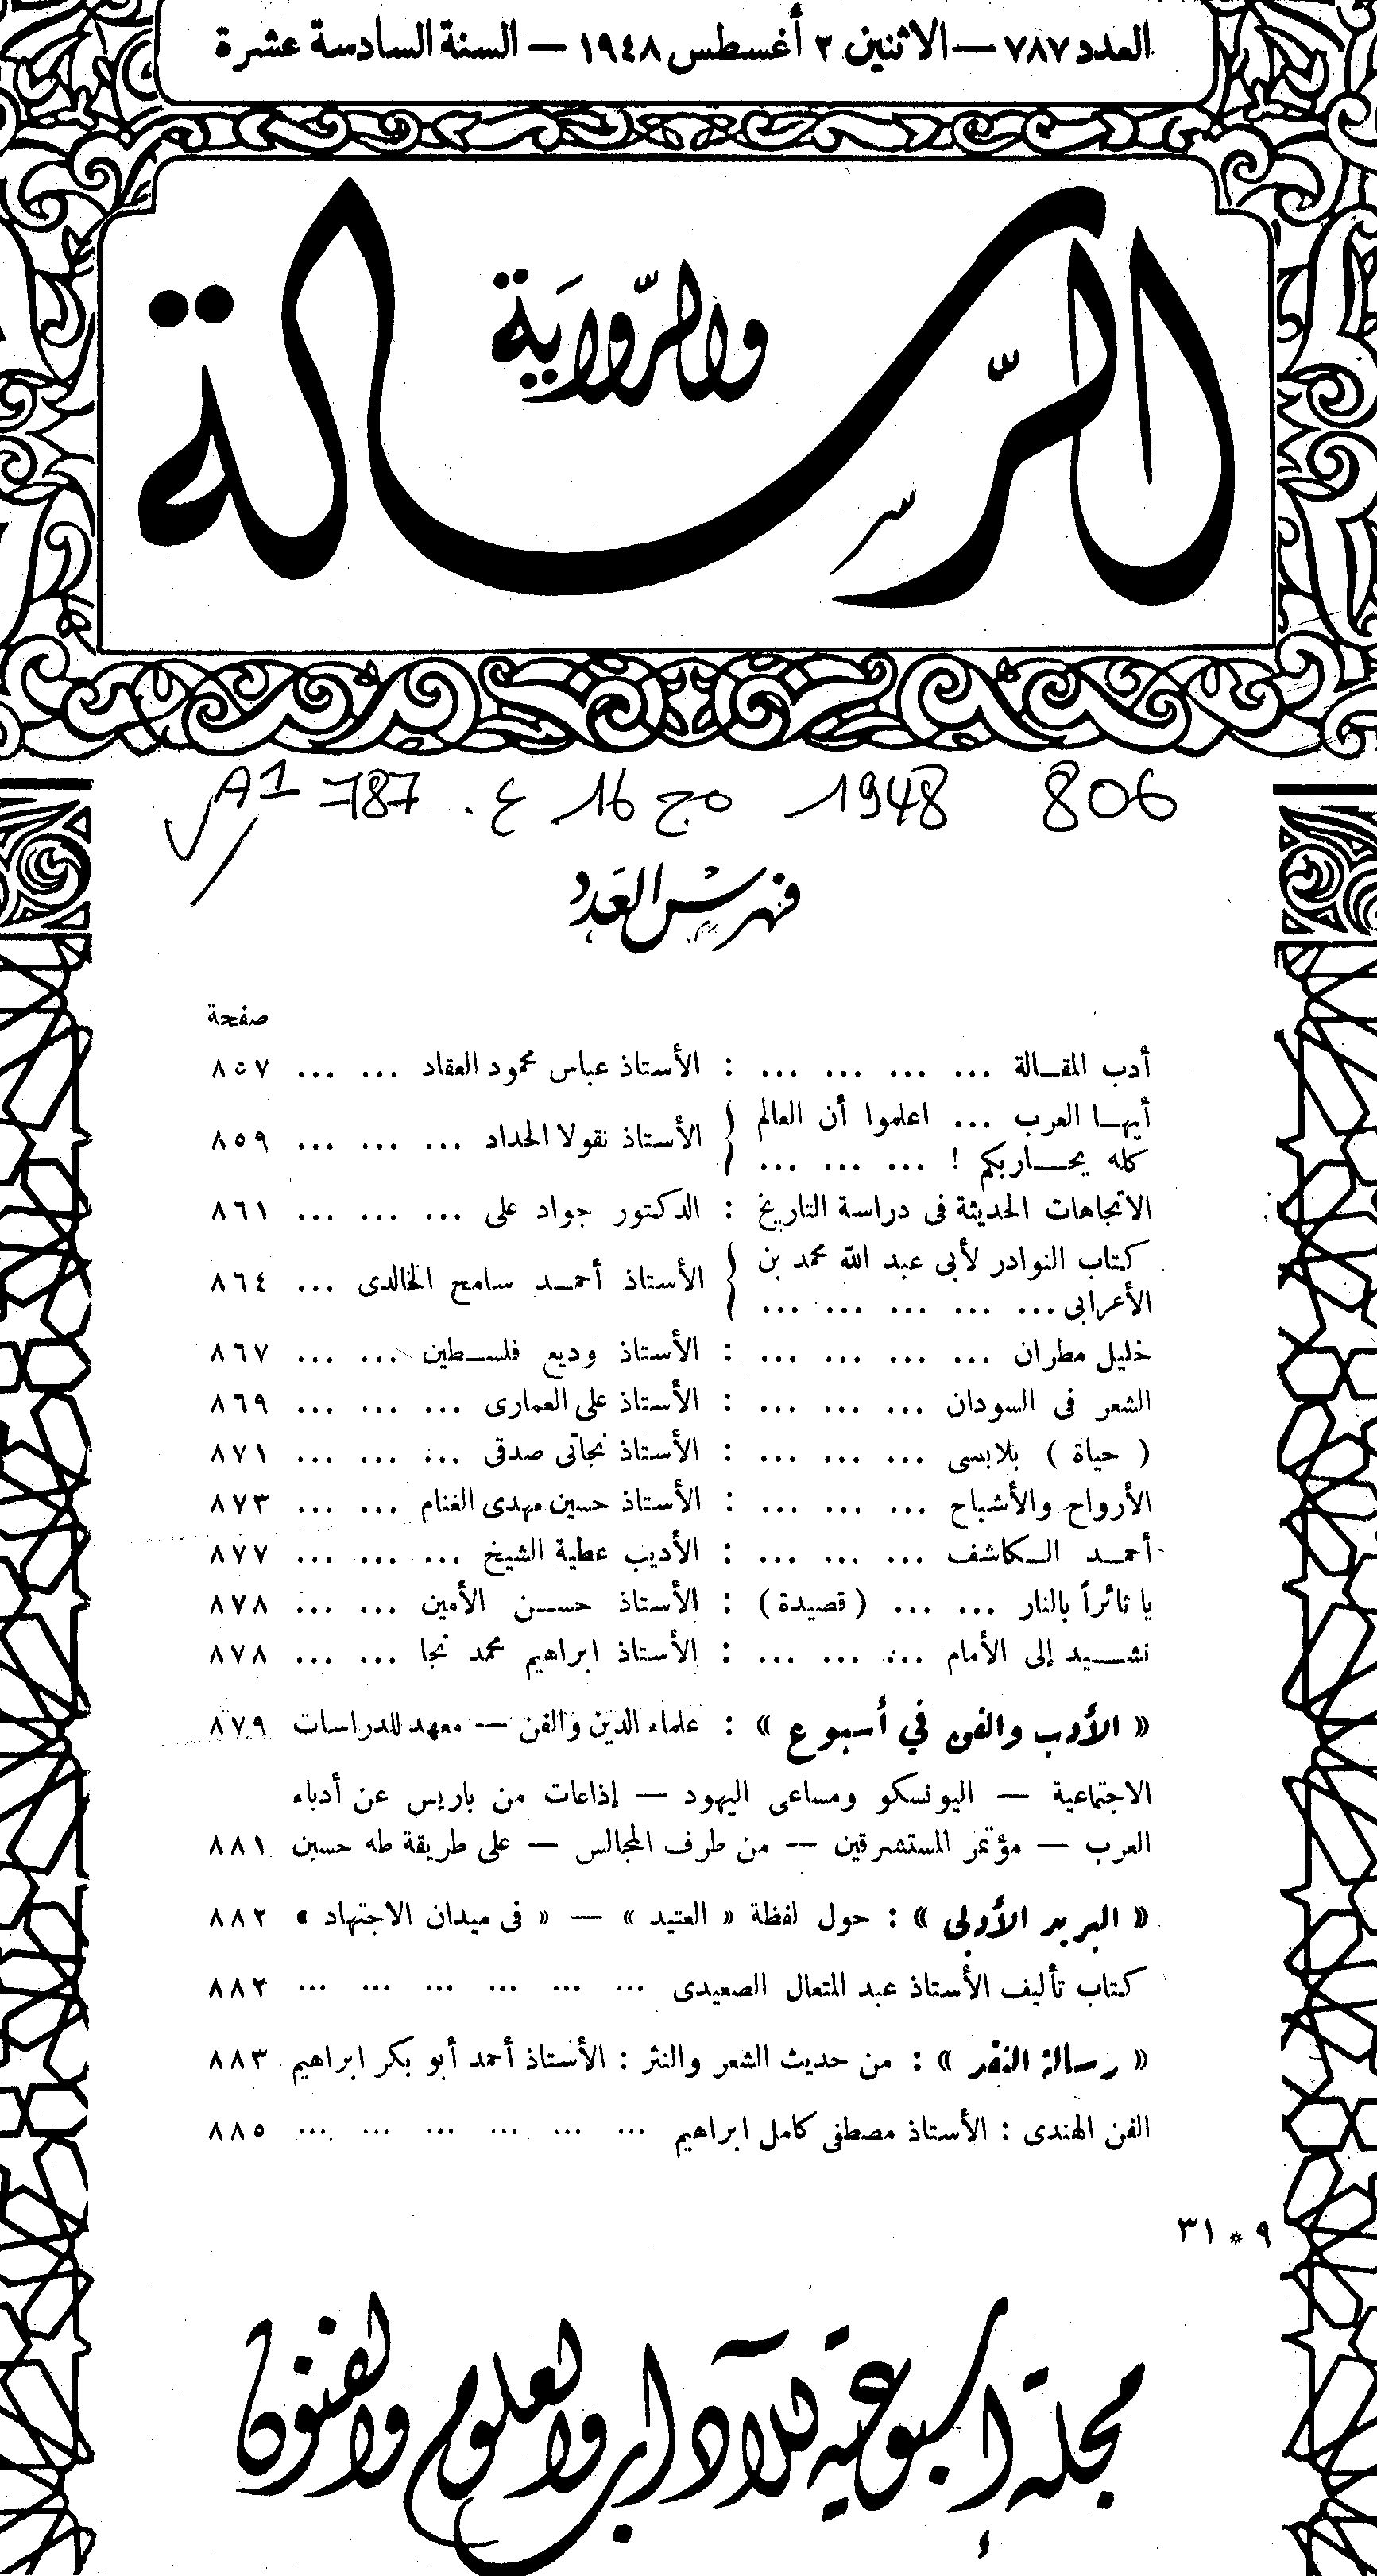 العدد ٧٨٧ — الاثنين ٢ أغسطس ١٩٤٨ — السنة السادسة عشرة
الرّسالة
والرّوايَة
806 1948 مج 16 ع. 787 A1
فهرسْ العَدد
صفحة
أدب المقـالة ... ... ... ... : الأستاذ عباس محمود العقاد ... ... ٨٥٧
أيهـا العرب ... اعلموا أن العالم
كله يحـــاربكم ! ... ... ... } الأستاذ نقولا الحداد ... ... ... ٨٥٩
الاتجاهات الحديثة فى دراسة التاريخ : الدكتور جواد على ... ... ... ٨٦١
كتاب النوادر لأبى عبد الله محمد بن
الأعرابى ... ... ... ... ... } الأستاذ أحمـد سامح الخالدى ... ٨٦٤
خليل مطران ... ... ... ... : الأستاذ وديع فلسـطين ... ... ٨٦٧
الشعر فى السودان ... ... ... : الأستاذ على العمارى ... ... ... ٨٦٩
( حياة ) بلابسى ... ... ... : الأستاذ نجاتى صدقى ... ... ... ٨٧١
الأرواح والأشباح ... ... ... : الأستاذ حسين مهدى الغنام ... ... ٨٧٣
أحمـد الـكاشف ... ... ... : الأديب عطية الشيخ ... ... ... ٨٧٧
يا ثائراً بالنار ... ... (قصيدة) : الأستاذ حسـن الأمين ... ... ٨٧٨
نشـــيد إلى الأمام ... ... ... : الأستاذ ابراهيم محمد نجا ... ... ٨٧٨
« الأدب والفن في أسبوع » : علماء الدين والفن — معهد للدراسات ٨٧٩
الاجتماعية — اليونسكو ومساعى اليهود — إذاعات من باريس عن أدباء
العرب — مؤتمر المستشرقين — من طرف المجالس — على طريقة طه حسين ٨٨١
« البريد الأدبي » : حول لفظة « العتيد » — « فى ميدان الاجتهاد » ٨٨٢
كتاب تأليف الأستاذ عبد المتعال الصعيدى ... ... ... ... ... ... ٨٨٢
« رسالة النقد » : من حديث الشعر والنثر : الأستاذ أحمد أبو بكر ابراهيم ٨٨٣
الفن الهندى : الأستاذ مصطفى كامل ابراهيم ... ... ... ... ... ... ٨٨٥
٩ * ٣١
مجلة أسبوعية للآداب والعلوم والفنون